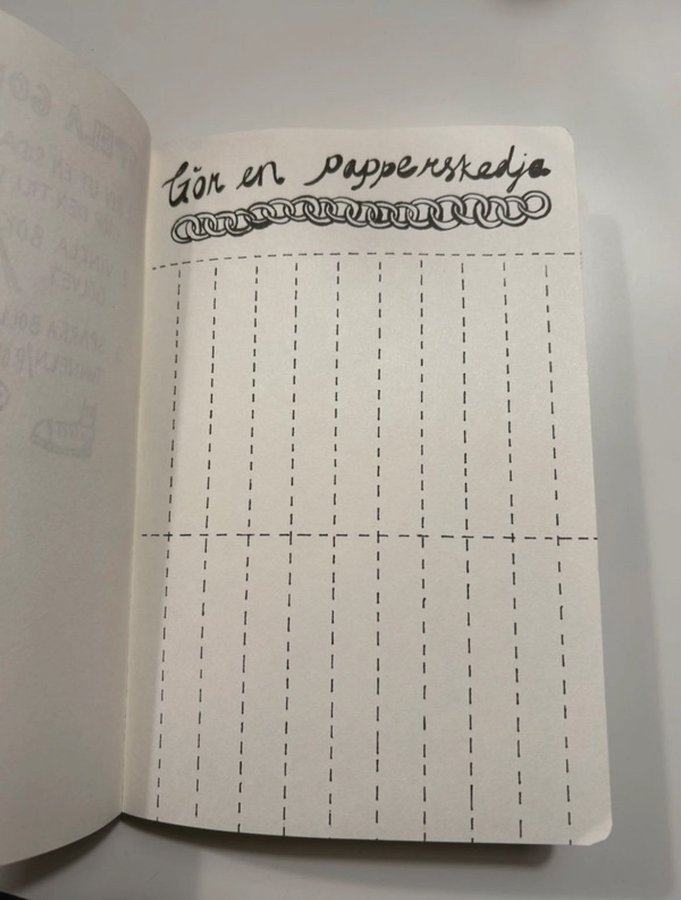 Gör en papperskedja